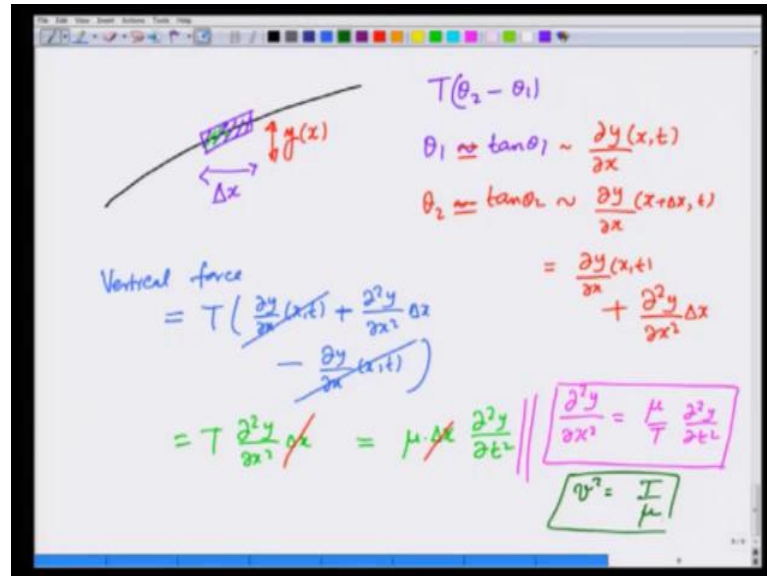 File Edit View Insert Actions Tools Help
T(θ₂ − θ₁)
y(x)
Δx
θ₁ ≈ tanθ₁ ~ ∂y/∂x (x,t)
θ₂ ≈ tanθ₂ ~ ∂y/∂x (x+Δx, t)
= ∂y/∂x (x,t)
+ ∂²y/∂x² Δx
Vertical force
= T ( ∂y/∂x (x,t) + ∂²y/∂x² Δx
− ∂y/∂x (x,t) )
= T ∂²y/∂x² Δx = μ·Δx ∂²y/∂t² || ∂²y/∂x² = μ/T ∂²y/∂t²
v² = T/μ